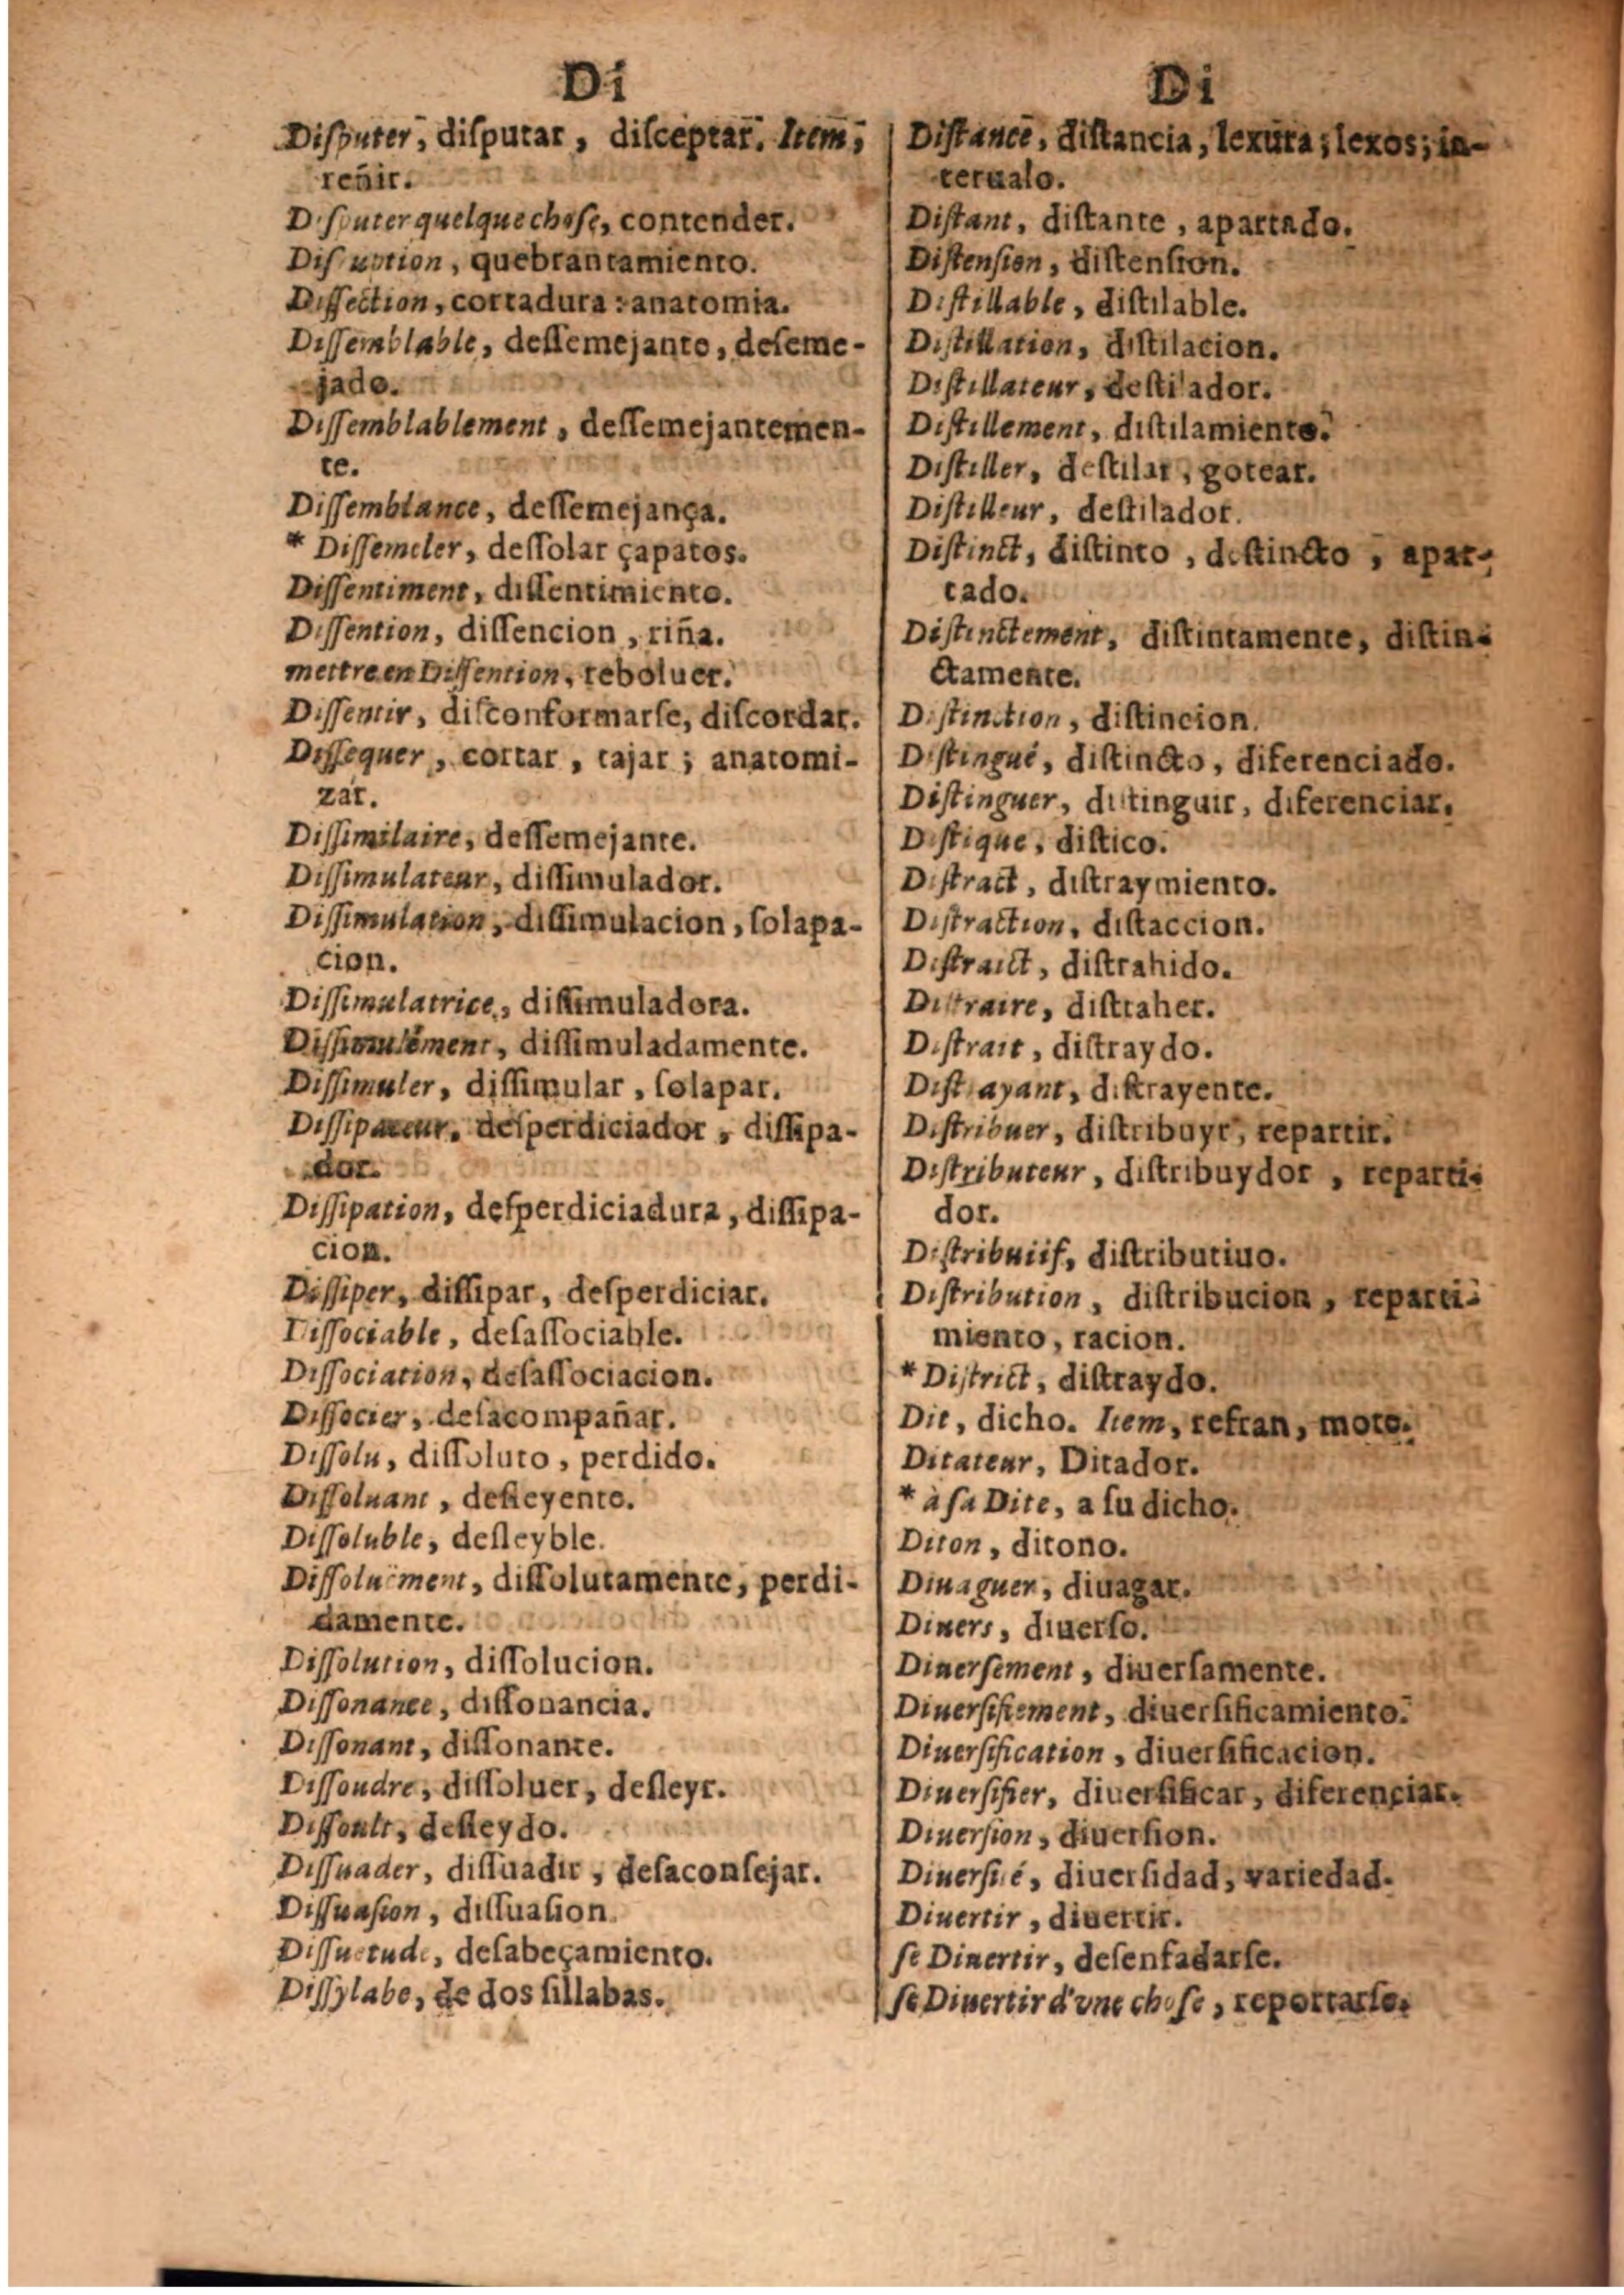 Di
Diſputer, diſputar, diſceptar. Item,
reñir.
Diſputer quelque choſe, contender.
Diſruption, quebrantamiento.
Diſſection, cortadura: anatomia.
Diſſemblable, deſſemejante, deſeme-
jado.
Diſſemblablement, deſſemejantemen-
te.
Diſſemblance, deſſemejança.
* Diſſemeler, deſſolar çapatos.
Diſſentiment, diſſentimiento.
Diſſention, diſſencion, riña.
mettre en Diſſention, reboluer.
Diſſentir, diſconformarſe, diſcordar.
Diſſequer, cortar, tajar; anatomi-
zar.
Diſſimilaire, deſſemejante.
Diſſimulateur, diſſimulador.
Diſſimulation, diſſimulacion, ſolapa-
cion.
Diſſimulatrice, diſſimuladora.
Diſſimulément, diſſimuladamente.
Diſſimuler, diſſimular, ſolapar.
Diſſipateur, deſperdiciador, diſſipa-
dor.
Diſſipation, deſperdiciadura, diſſipa-
cion.
Diſſiper, diſſipar, deſperdiciar.
Diſſociable, deſaſſociable.
Diſſociation, deſaſſociacion.
Diſſocier, deſacompañar.
Diſſolu, diſſoluto, perdido.
Diſſoluant, deſleyente.
Diſſoluble, deſleyble.
Diſſoluëment, diſſolutamente, perdi-
damente.
Diſſolution, diſſolucion.
Diſſonance, diſſonancia.
Diſſonant, diſſonante.
Diſſoudre, diſſoluer, deſleyr.
Diſſoult, deſleydo.
Diſſuader, diſſuadir, deſaconſejar.
Diſſuaſion, diſſuaſion.
Diſſuetude, deſabeçamiento.
Diſſylabe, de dos ſillabas.
Di
Diſtance, diſtancia, lexura; lexos; in-
terualo.
Diſtant, diſtante, apartado.
Diſtenſion, diſtenſion.
Diſtillable, diſtilable.
Diſtillation, diſtilacion.
Diſtillateur, deſtilador.
Diſtillement, diſtilamiento.
Diſtiller, deſtilar, gotear.
Diſtilleur, deſtilador.
Diſtinct, diſtinto, diſtincto, apar-
tado.
Diſtinctement, diſtintamente, diſtin-
ctamente.
Diſtinction, diſtincion.
Diſtingué, diſtincto, diferenciado.
Diſtinguer, diſtinguir, diferenciar.
Diſtique, diſtico.
Diſtract, diſtraymiento.
Diſtraction, diſtaccion.
Diſtraict, diſtrahido.
Diſtraire, diſtraher.
Diſtrait, diſtraydo.
Diſtrayant, diſtrayente.
Diſtribuer, diſtribuyr, repartir.
Diſtributeur, diſtribuydor, reparti-
dor.
Diſtributif, diſtributiuo.
Diſtribution, diſtribucion, reparti-
miento, racion.
* Diſtrict, diſtraydo.
Dit, dicho. Item, refran, mote.
Ditateur, Ditador.
* à ſa Dite, a ſu dicho.
Diton, ditono.
Diuaguer, diuagar.
Diuers, diuerſo.
Diuerſement, diuerſamente.
Diuerſifiement, diuerſificamiento.
Diuerſification, diuerſificacion.
Diuerſifier, diuerſificar, diferenciar.
Diuerſion, diuerſion.
Diuerſité, diuerſidad, variedad.
Diuertir, diuertir.
ſe Diuertir, deſenfadarſe.
ſe Diuertir d'vne choſe, reportarſe.